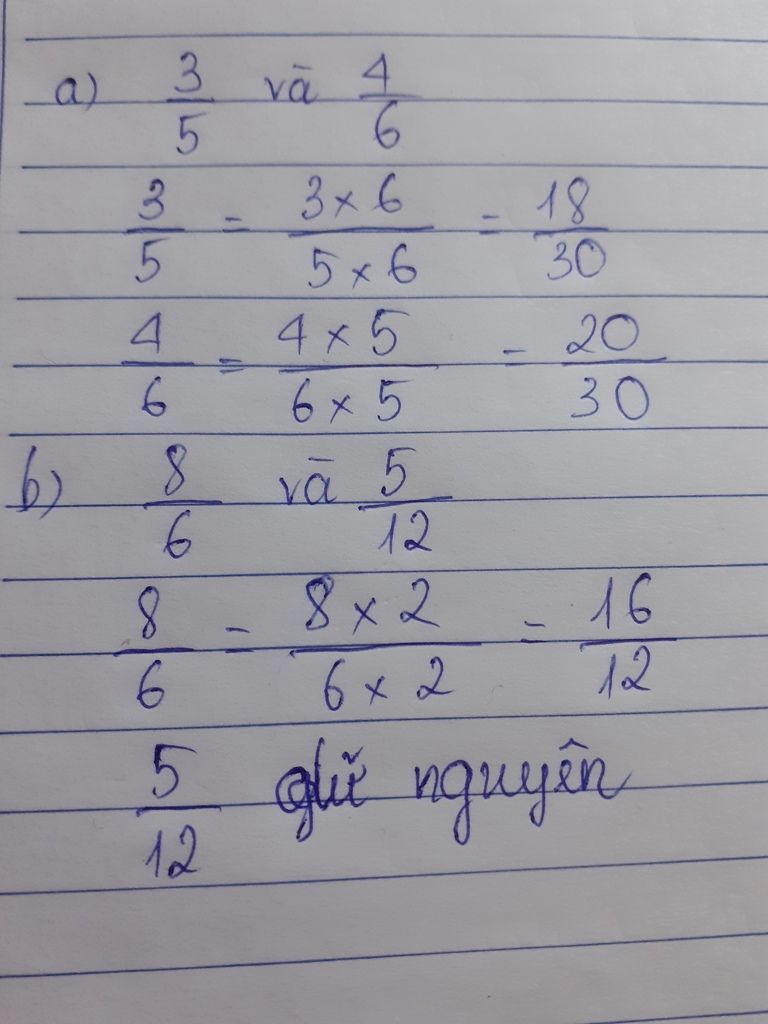 a) 3/5 và 4/6
3/5 = 3 × 6 / 5 × 6 = 18/30
4/6 = 4 × 5 / 6 × 5 = 20/30
b) 8/6 và 5/12
8/6 = 8 × 2 / 6 × 2 = 16/12
5/12 giữ nguyên